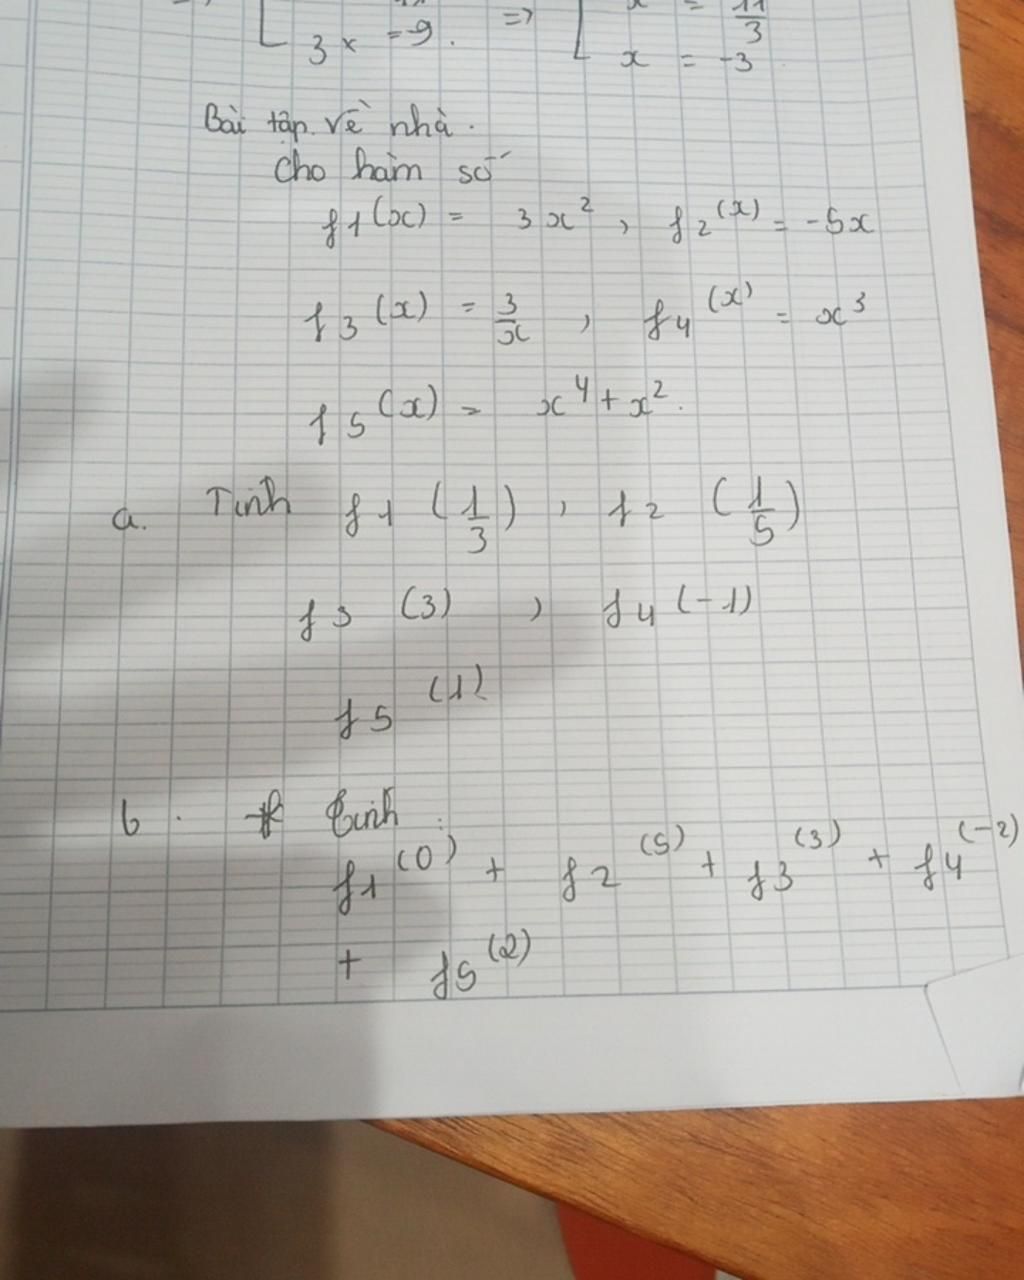 3x = -9. => x = 11/3
x = -3
Bài tập về nhà.
Cho hàm số
f1(x) = 3x², f2(x) = -5x
f3(x) = 3/x, f4(x) = x³
f5(x) = x⁴ + x².
a. Tính f1(1/3), f2(1/5)
f3(3), f4(-1)
f5(1)
b. Tính:
f1(0) + f2(5) + f3(3) + f4(-2)
+ f5(2)